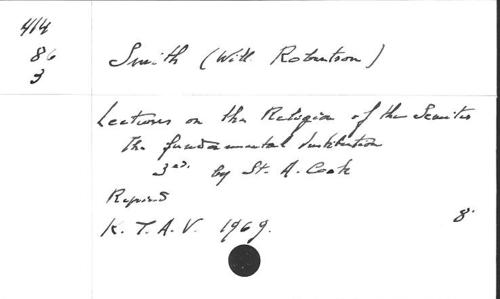 414
86
3
Smith (Will Robertson)
Lectures on the Religion of the Semites
The fundamental Institution
3ed. by St. A. Cook
Reprint
K. T. A. V. 1969.
8°